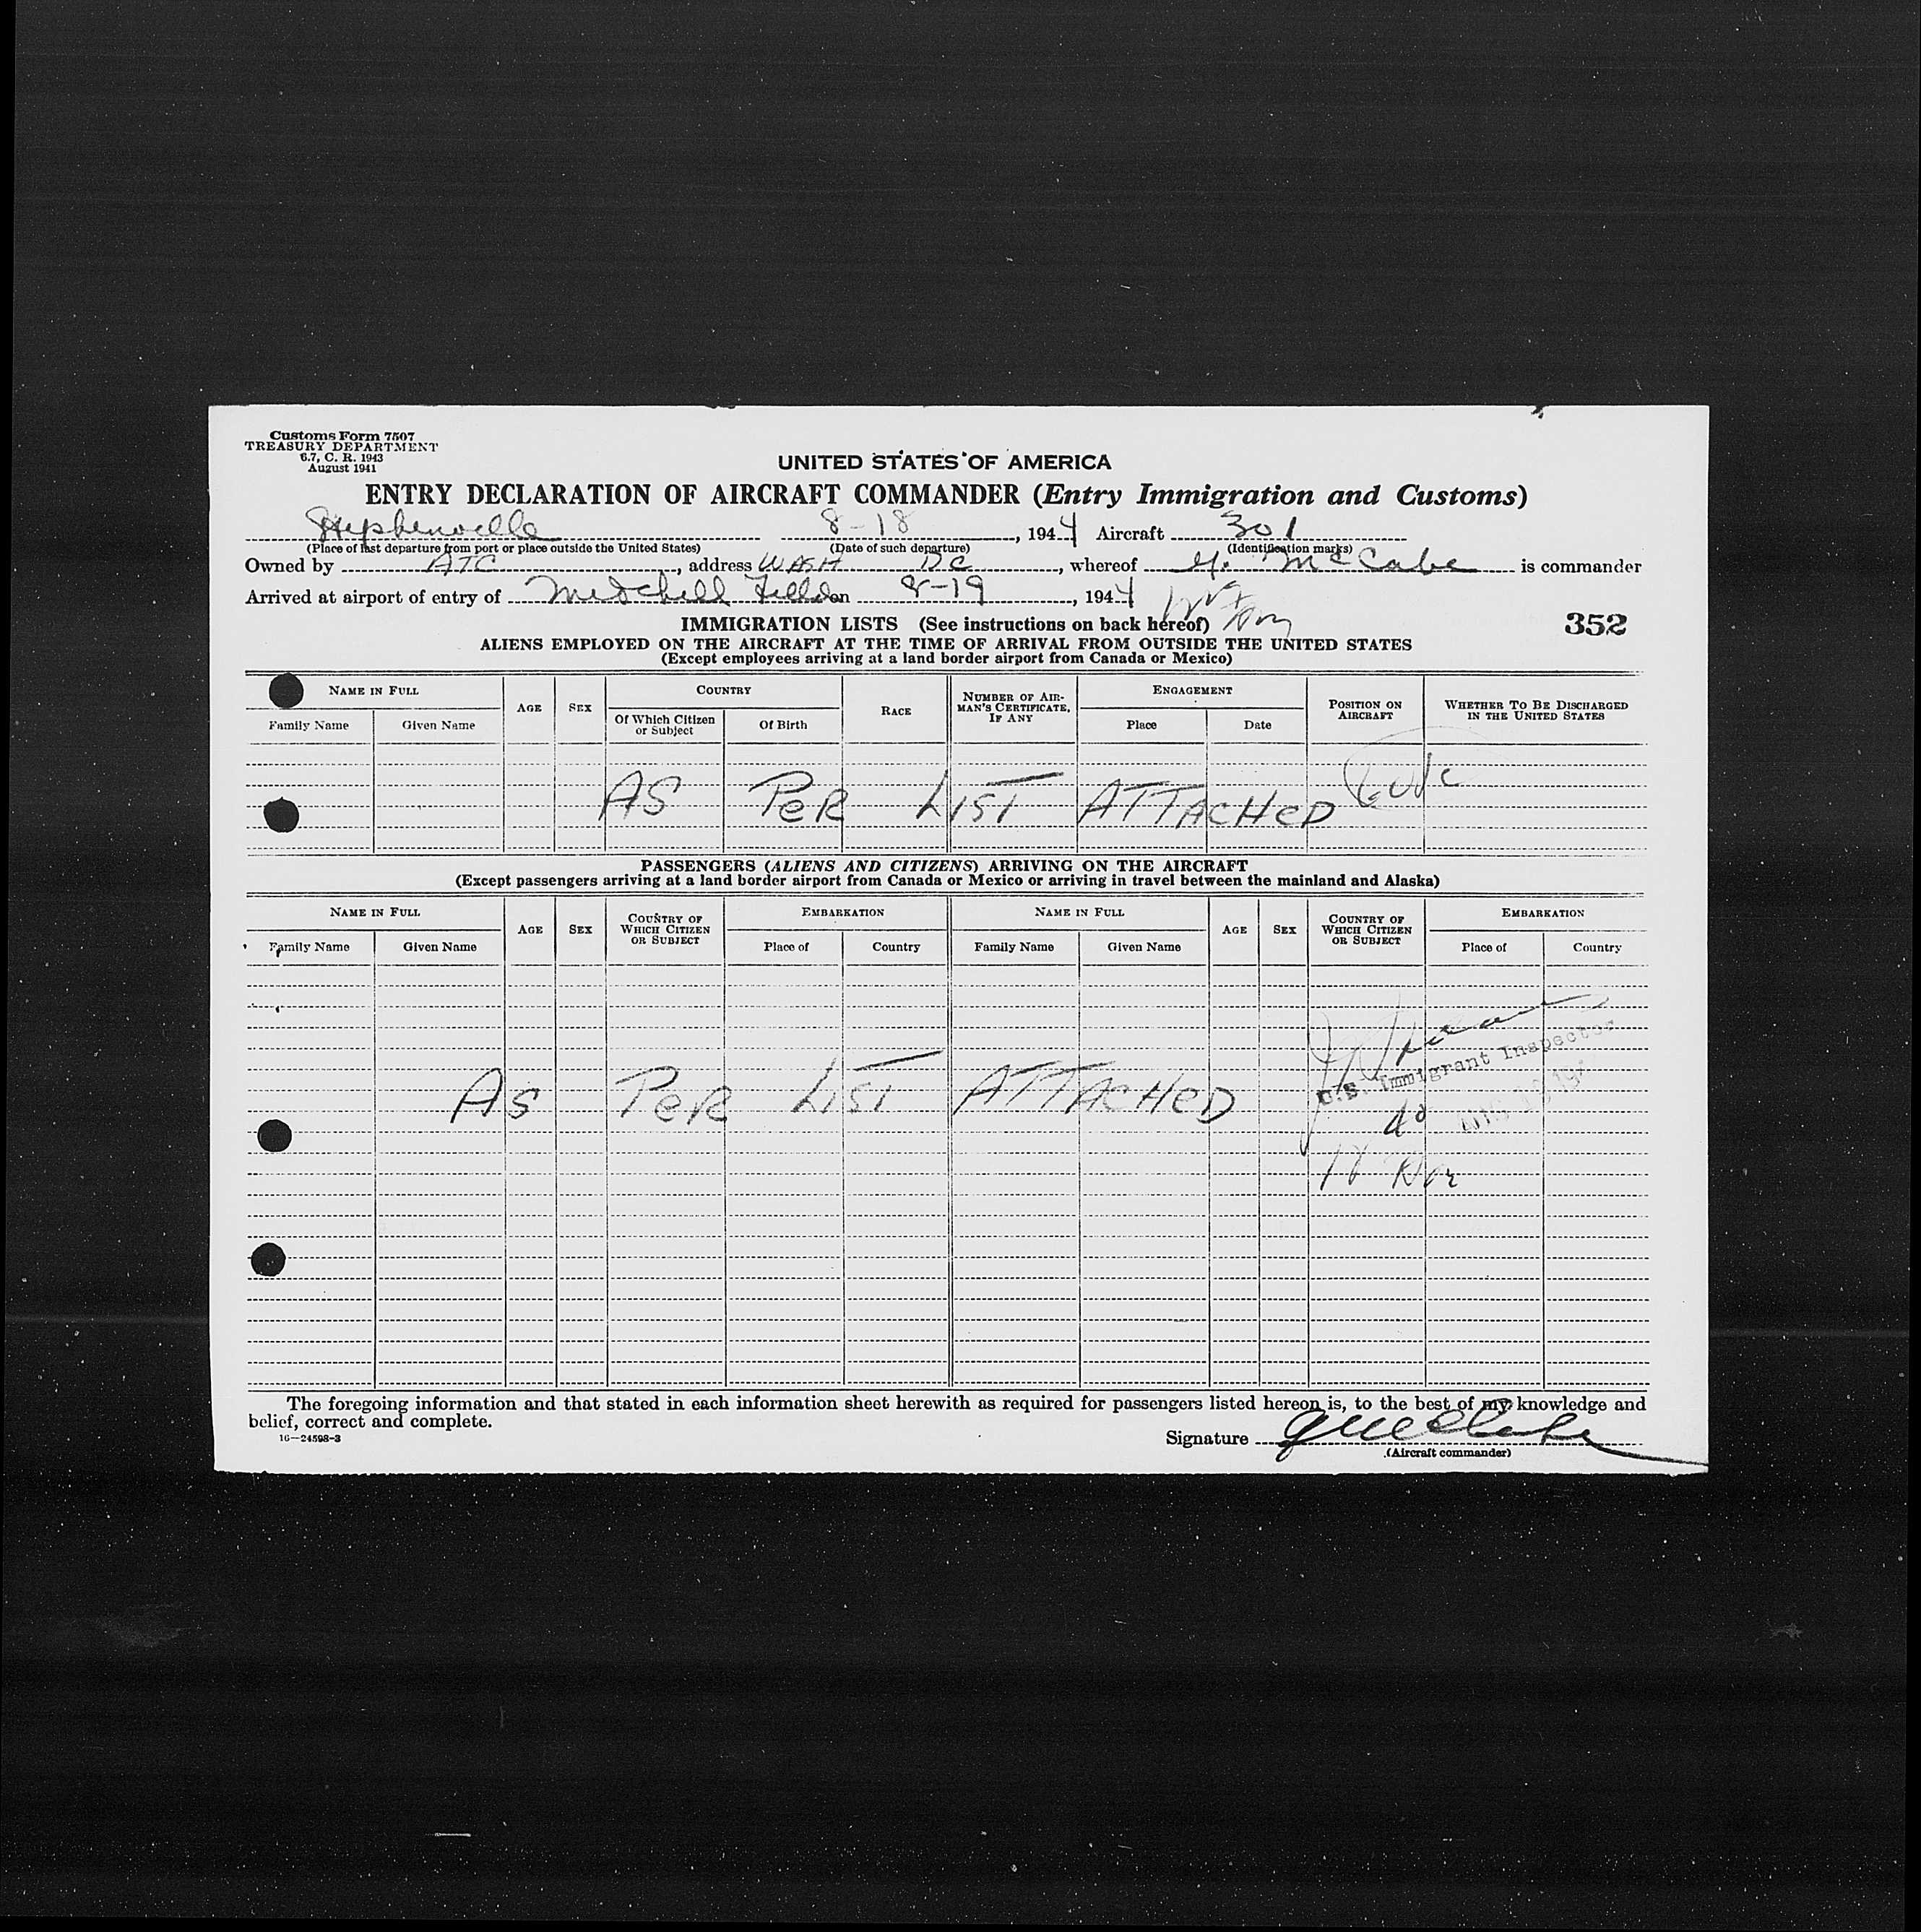 Customs Form 7507
TREASURY DEPARTMENT
6.7, C. R. 1943
August 1941
UNITED STATES OF AMERICA
ENTRY DECLARATION OF AIRCRAFT COMMANDER (Entry Immigration and Customs)
Stephenville 8-18, 1944 Aircraft 301
(Place of last departure from port or place outside the United States) (Date of such departure) (Identification marks)
Owned by ATC, address WASH DC, whereof McCabe is commander
Arrived at airport of entry of Mitchell Field on 8-19, 1944
IMMIGRATION LISTS (See instructions on back hereof)
352
ALIENS EMPLOYED ON THE AIRCRAFT AT THE TIME OF ARRIVAL FROM OUTSIDE THE UNITED STATES
(Except employees arriving at a land border airport from Canada or Mexico)
NAME IN FULL AGE SEX COUNTRY RACE NUMBER OF AIRMAN'S CERTIFICATE, IF ANY ENGAGEMENT POSITION ON AIRCRAFT WHETHER TO BE DISCHARGED IN THE UNITED STATES
Family Name Given Name Of Which Citizen or Subject Of Birth Place Date
AS PER LIST ATTACHED
PASSENGERS (ALIENS AND CITIZENS) ARRIVING ON THE AIRCRAFT
(Except passengers arriving at a land border airport from Canada or Mexico or arriving in travel between the mainland and Alaska)
NAME IN FULL AGE SEX COUNTRY OF WHICH CITIZEN OR SUBJECT EMBARKATION NAME IN FULL AGE SEX COUNTRY OF WHICH CITIZEN OR SUBJECT EMBARKATION
Family Name Given Name Place of Country Family Name Given Name Place of Country
U.S. Immigrant Inspector
AS PER LIST ATTACHED
The foregoing information and that stated in each information sheet herewith as required for passengers listed hereon is, to the best of my knowledge and
belief, correct and complete.
16—24598-3
Signature
(Aircraft commander)